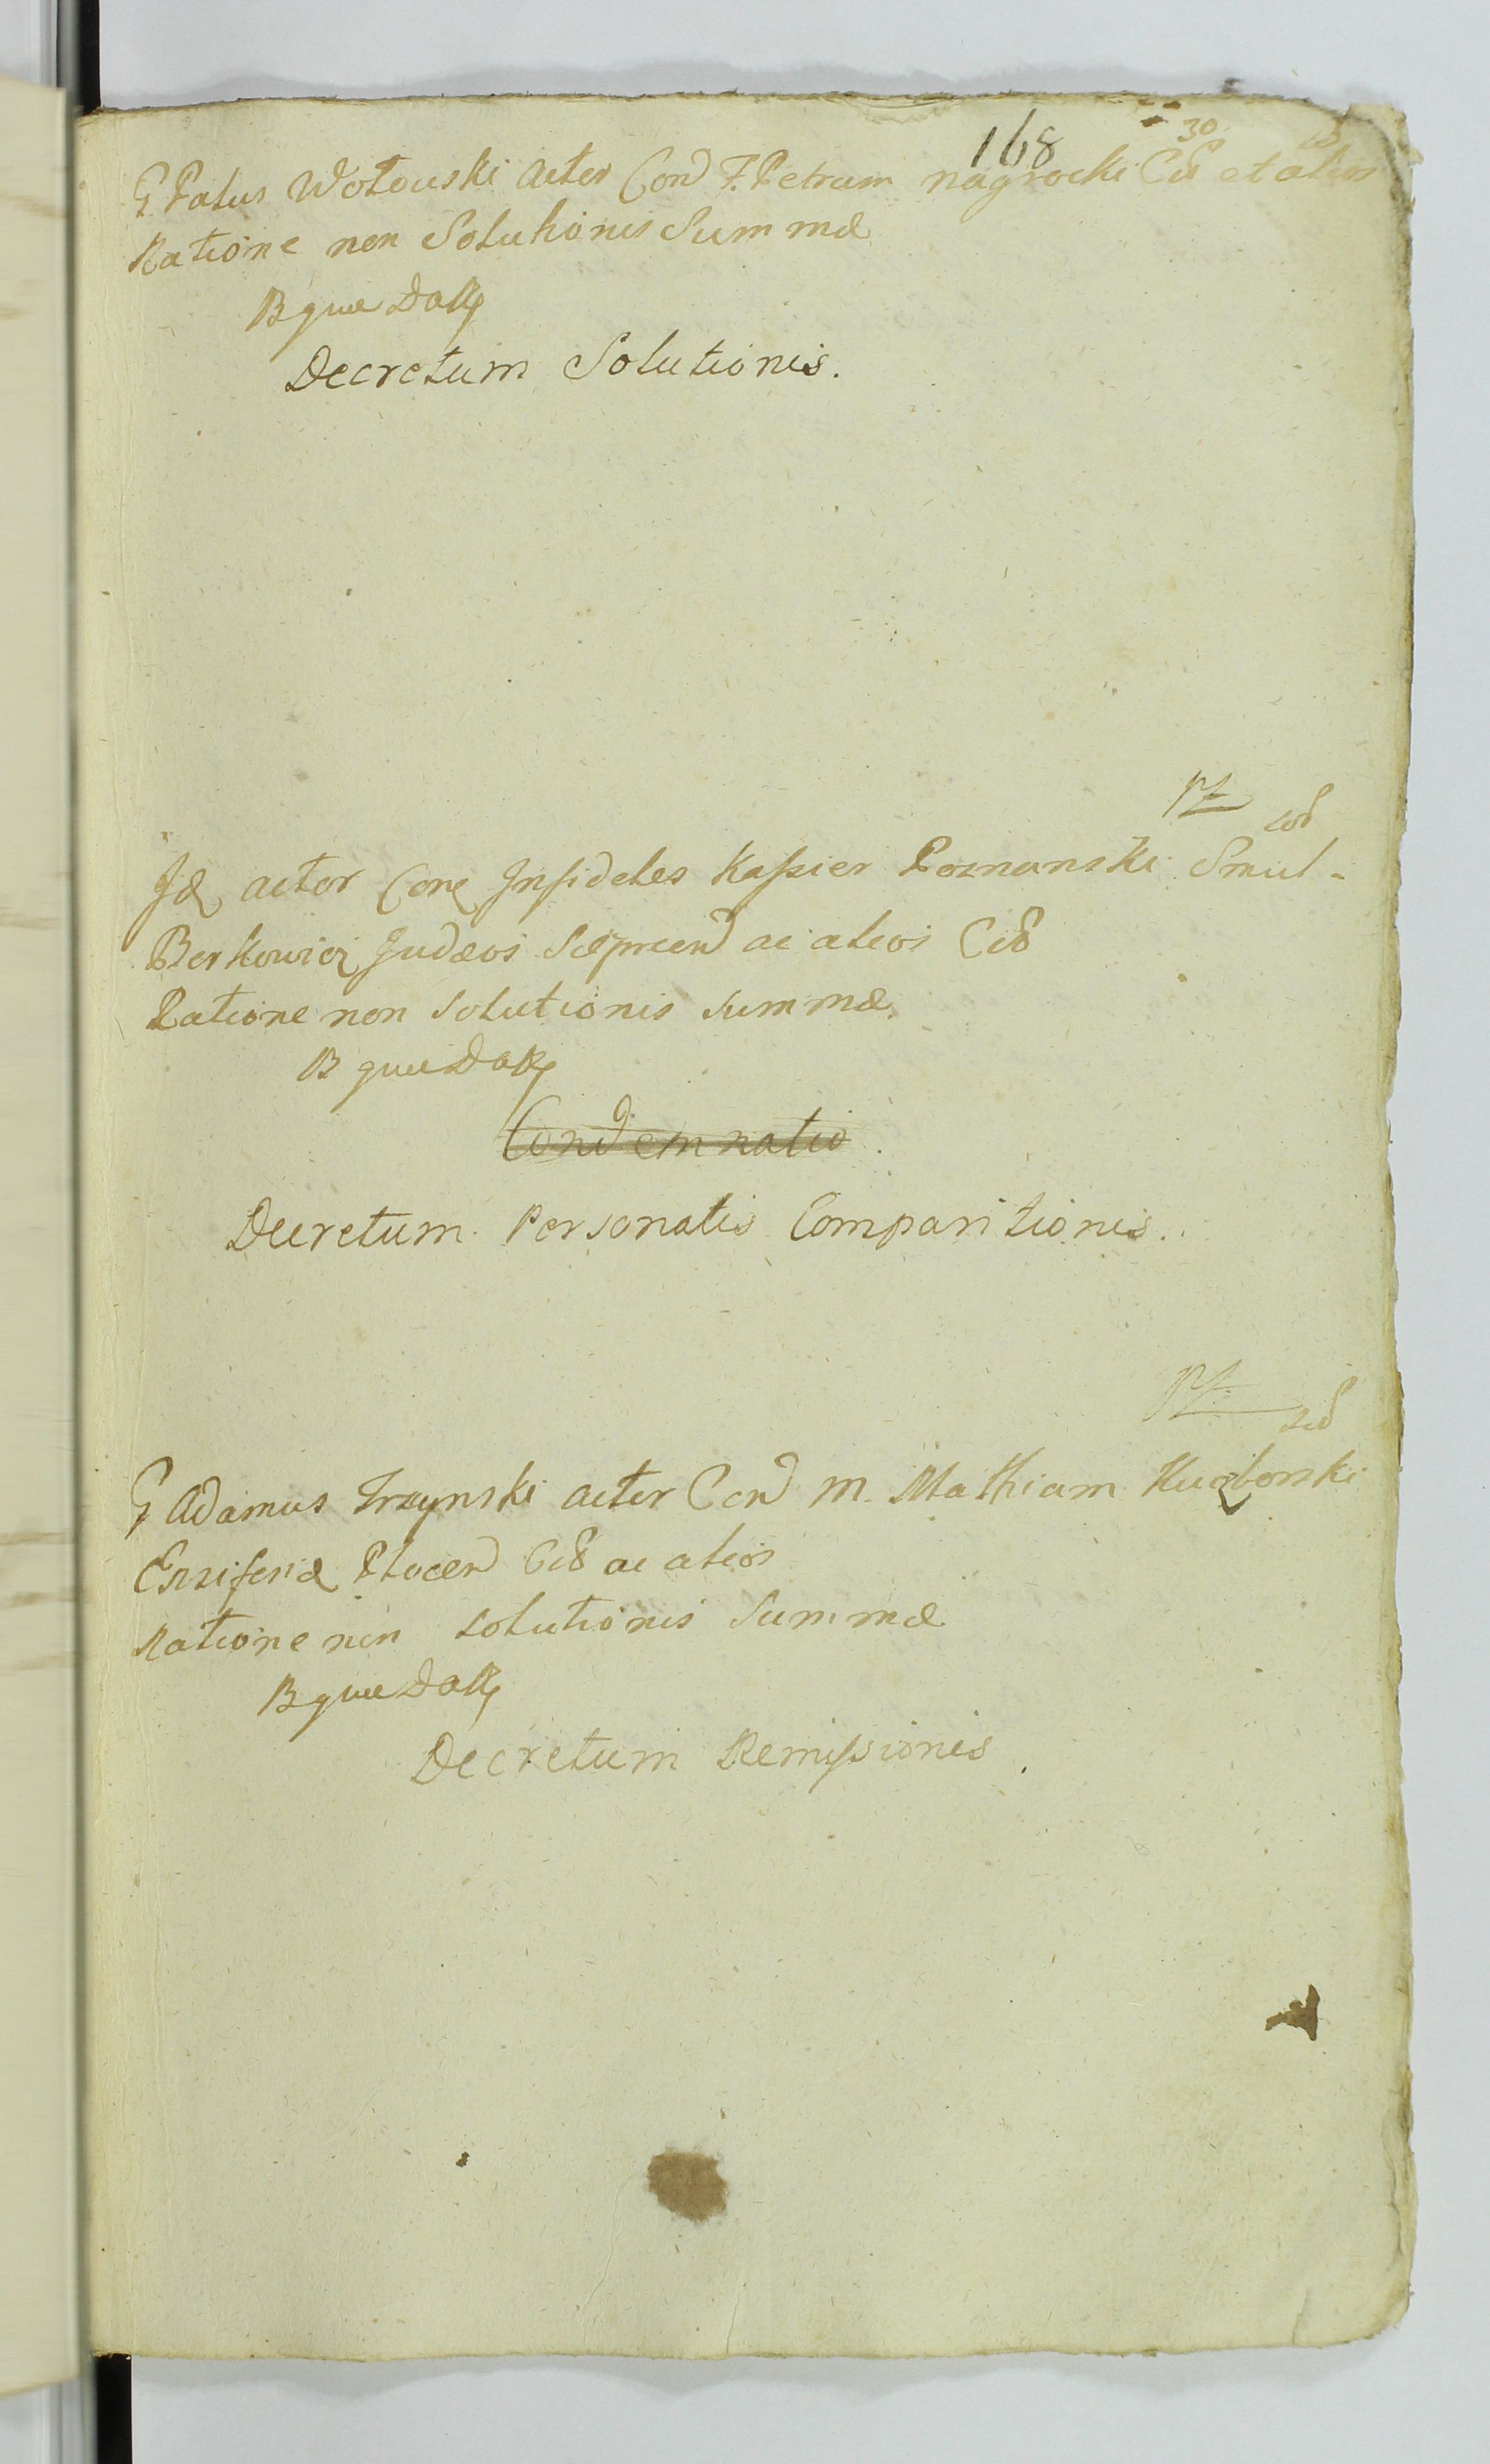 168
30
G Palus Wotowski Actor Con F. Petrum nagrocki Cit et alios
Ratione non Solutionis Summæ
B quæ Dorſ
Decretum Solutionis.
Id actor Con Infideles Kaſsier Poznanski Smul-
Berkowicz Judæos Sieprcen ac alios Cit
Ratione non Solutionis Summæ
B quæ Dorſ
Condemnatio.
Decretum Personalis Comparitionis.
G Adamus Trzynski actor Con M. Mathiam Kuczborski
Ensiferũ Plocen Cit ac alios
Ratione non Solutionis Summæ
B quæ Dorſ
Decretum Remiſsionis.